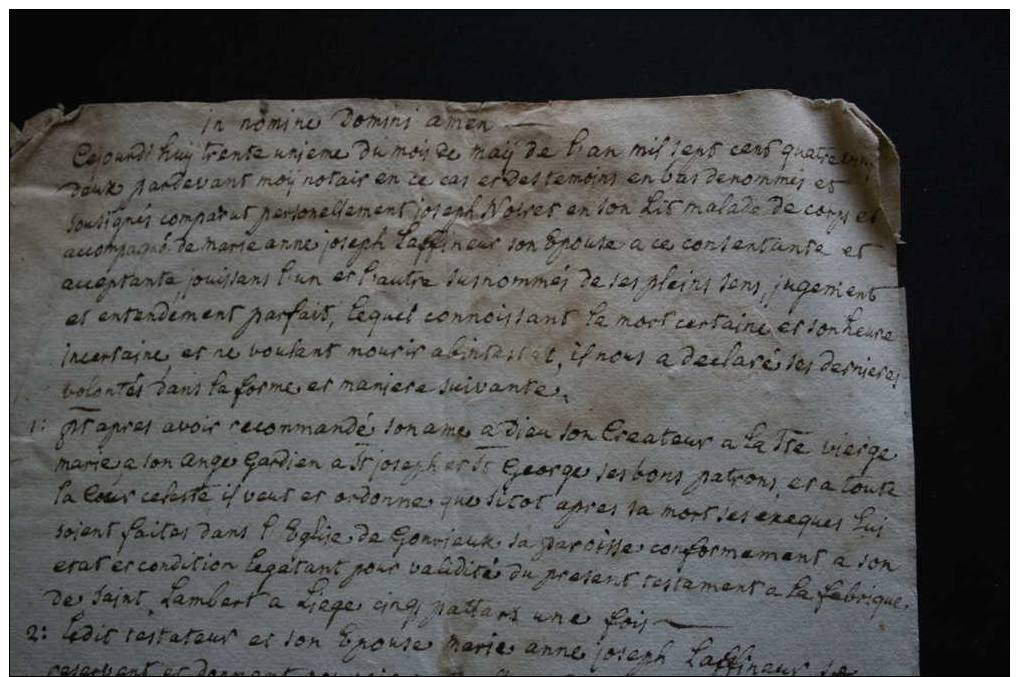 in nomine Domini amen
Cejourdhuy trente unieme du mois de maÿ de l'an mil sept cent quatrevin
deux pardevant moÿ notair en ce cas et des temoins en bas denommés et
soussignés comparut personellement joseph Noiret en son lit malade de corps et
accompagné de marie anne joseph Laffineur son Epouse a ce consentante et
acceptante, jouissans l'un et l'autre susnommés de ses pleins sens, jugement
et entendement parfait, lequel connoissant la mort certaine et son heure
incertaine et ne voulant mourir abintestat, il nous a declaré ses dernieres
volontés dans la forme et maniere suivante.
1: pt apres avoir recommandé son ame a Dieu son Createur a la Ste vierge
marie a son ange Gardien a St joseph et St George ses bons patrons, et a toute
la Cour celeste il veut et ordonne que sitot apres sa mort ses exeques lui
soient faites dans l'Eglise de Gonrieux sa paroisse conformement a son
etat et condition legatant pour validité du present testament a la fabrique
de Saint Lambert a Liege cinq pattars une fois
2: ledit testateur et son Epouse marie anne joseph Laffineur se
reservent et donnent